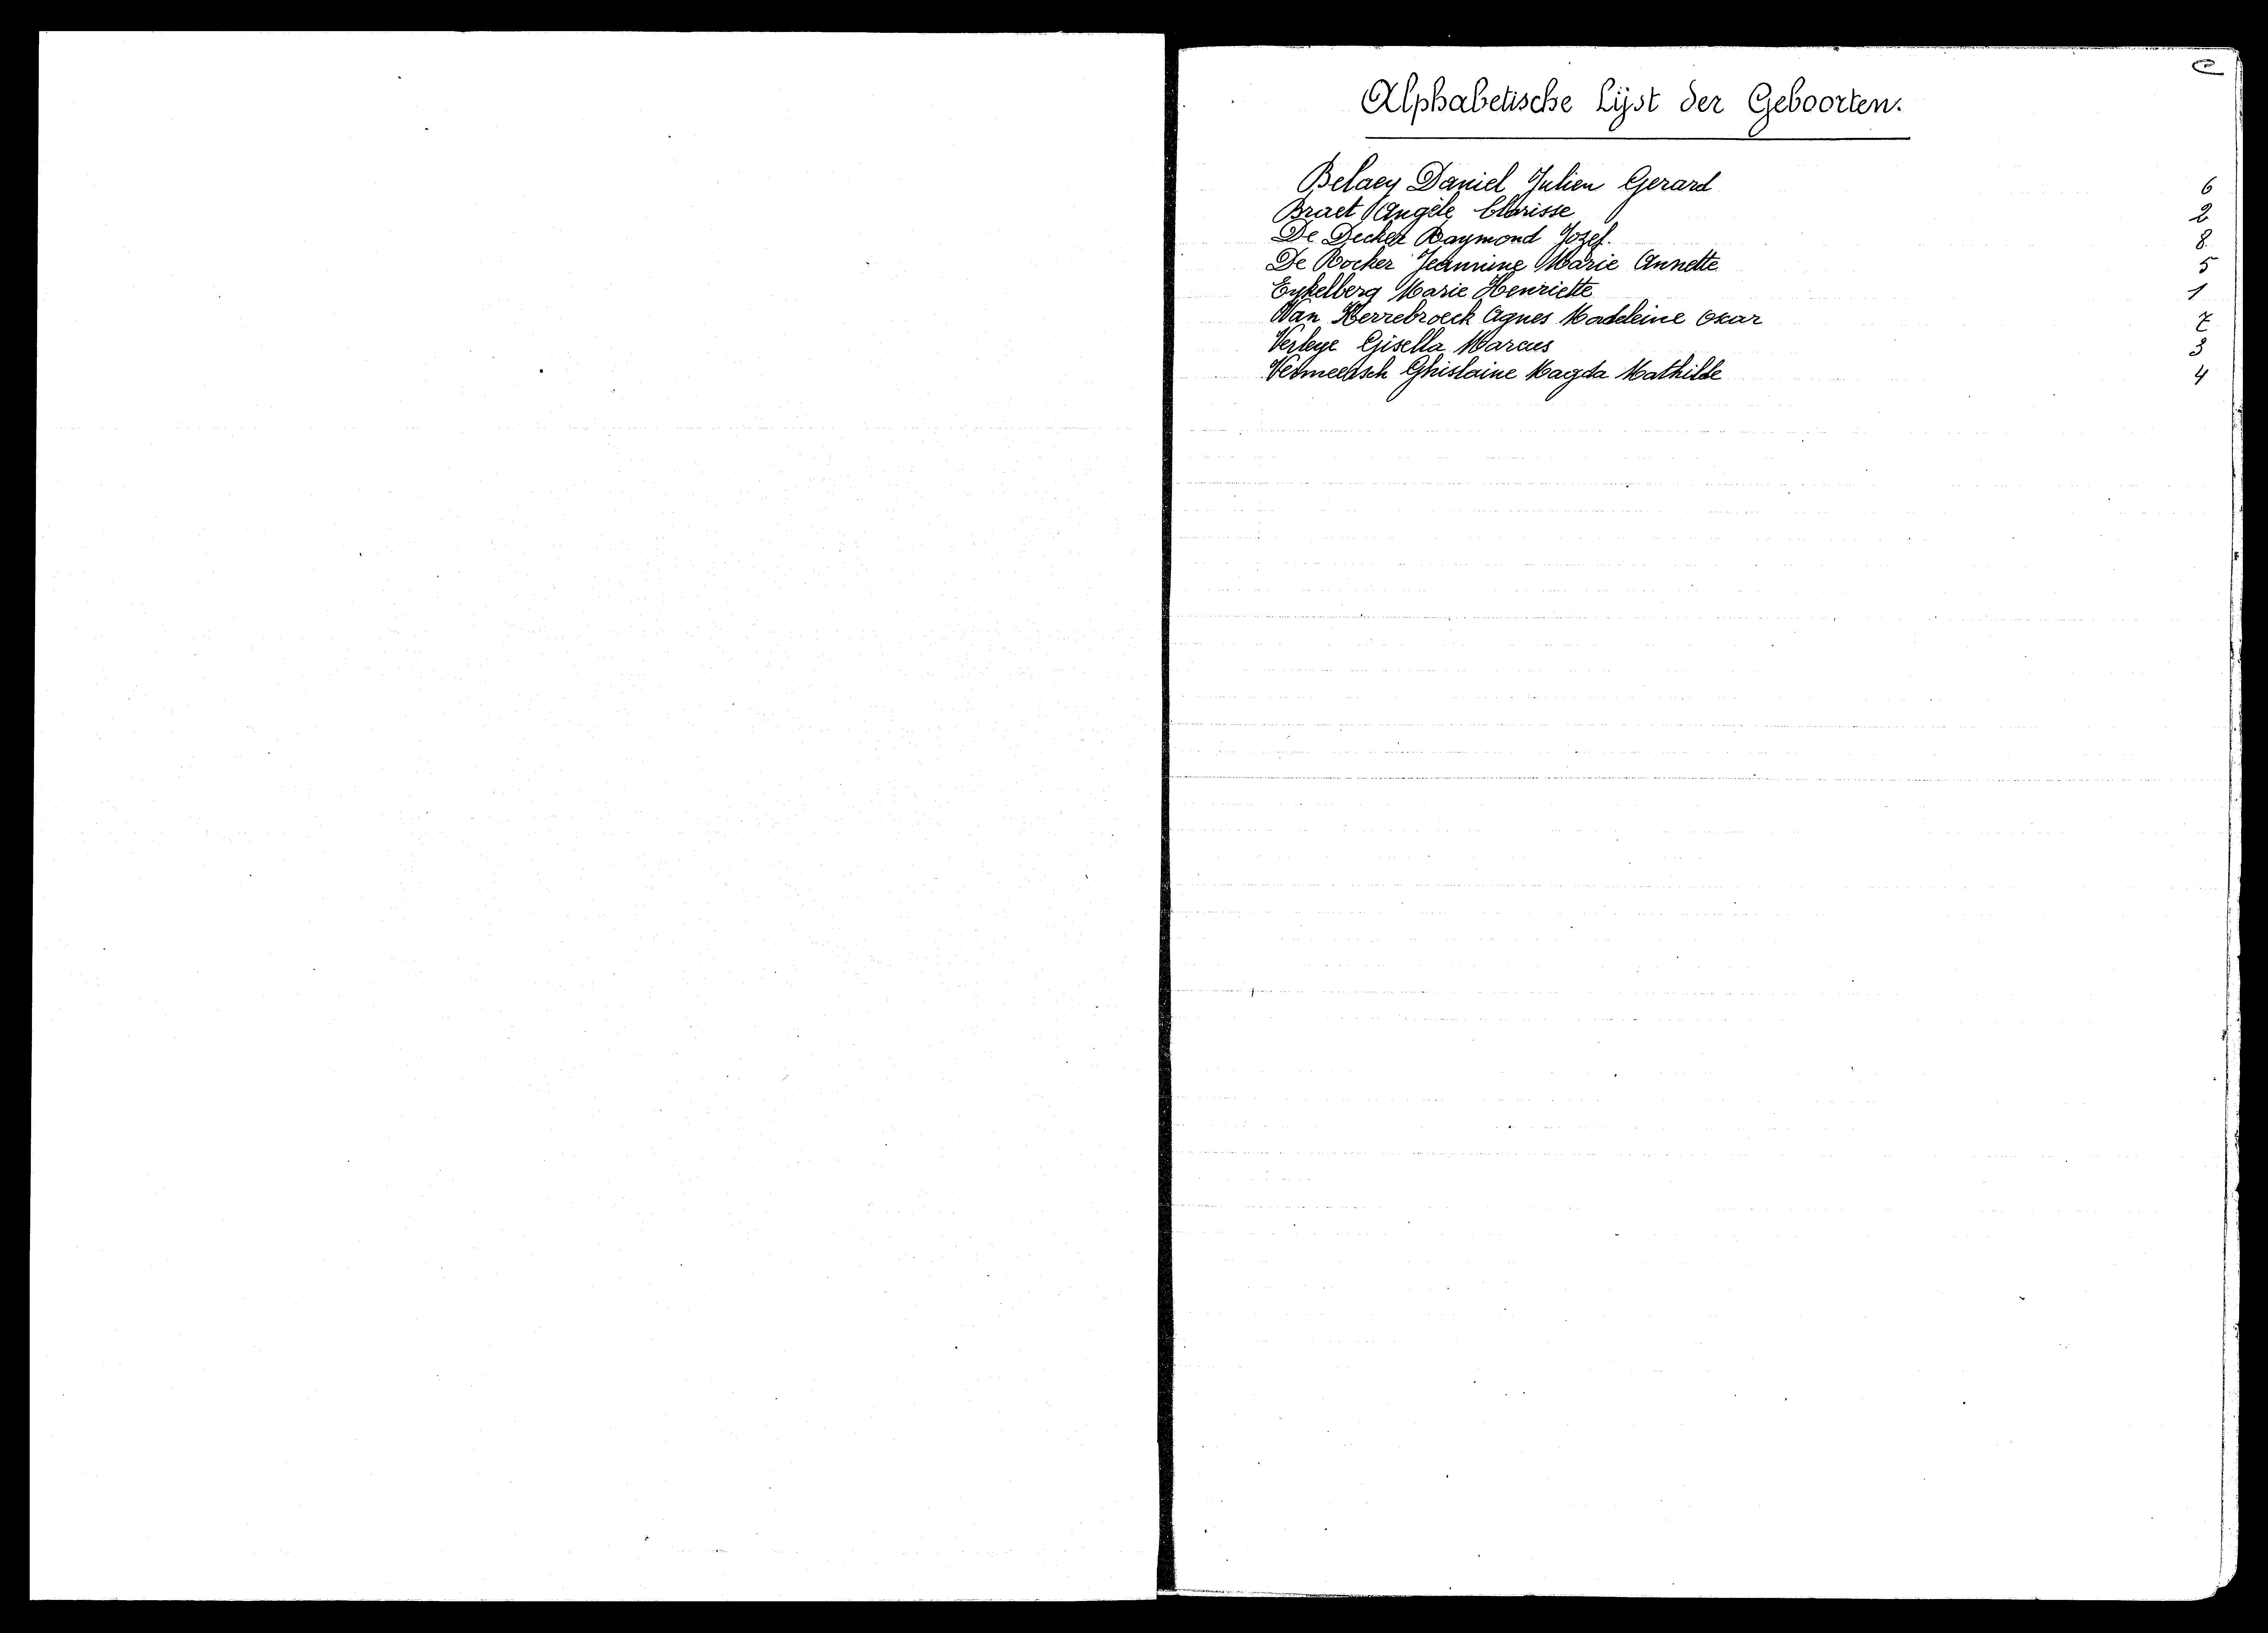 Alphabetische Lijst der Geboorten.
Belaey Daniel Julien Gerard 6
Braet Angèle Clarisse 2
De Decker Raymond Jozef. 8
De Rocker Jeannine Marie Annette 5
Eykelberg Marie Henriette 1
Van Kerrebroeck Agnes Madeleine Oscar 7
Verleye Gisella Marcus 3
Vermeersch Ghislaine Magda Mathilde 4